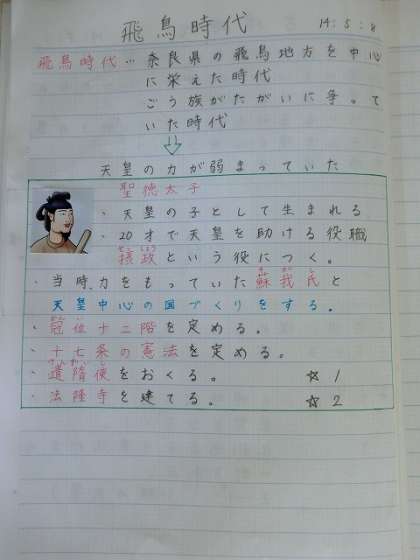 飛鳥時代
14.5.8
飛鳥時代…奈良県の飛鳥地方を中心
に栄えた時代
ごう族がたがいに争って
いた時代
天皇の力が弱まっていた
聖徳太子
・天皇の子として生まれる
・20才で天皇を助ける役職
せっしょう
摂政という役につく。
そがし
・当時、力をもっていた蘇我氏と
天皇中心の国づくりをする。
・冠位十二階を定める。
・十七条の憲法を定める。
けんずいし
・遣隋使をおくる。 ☆1
・法隆寺を建てる。 ☆2